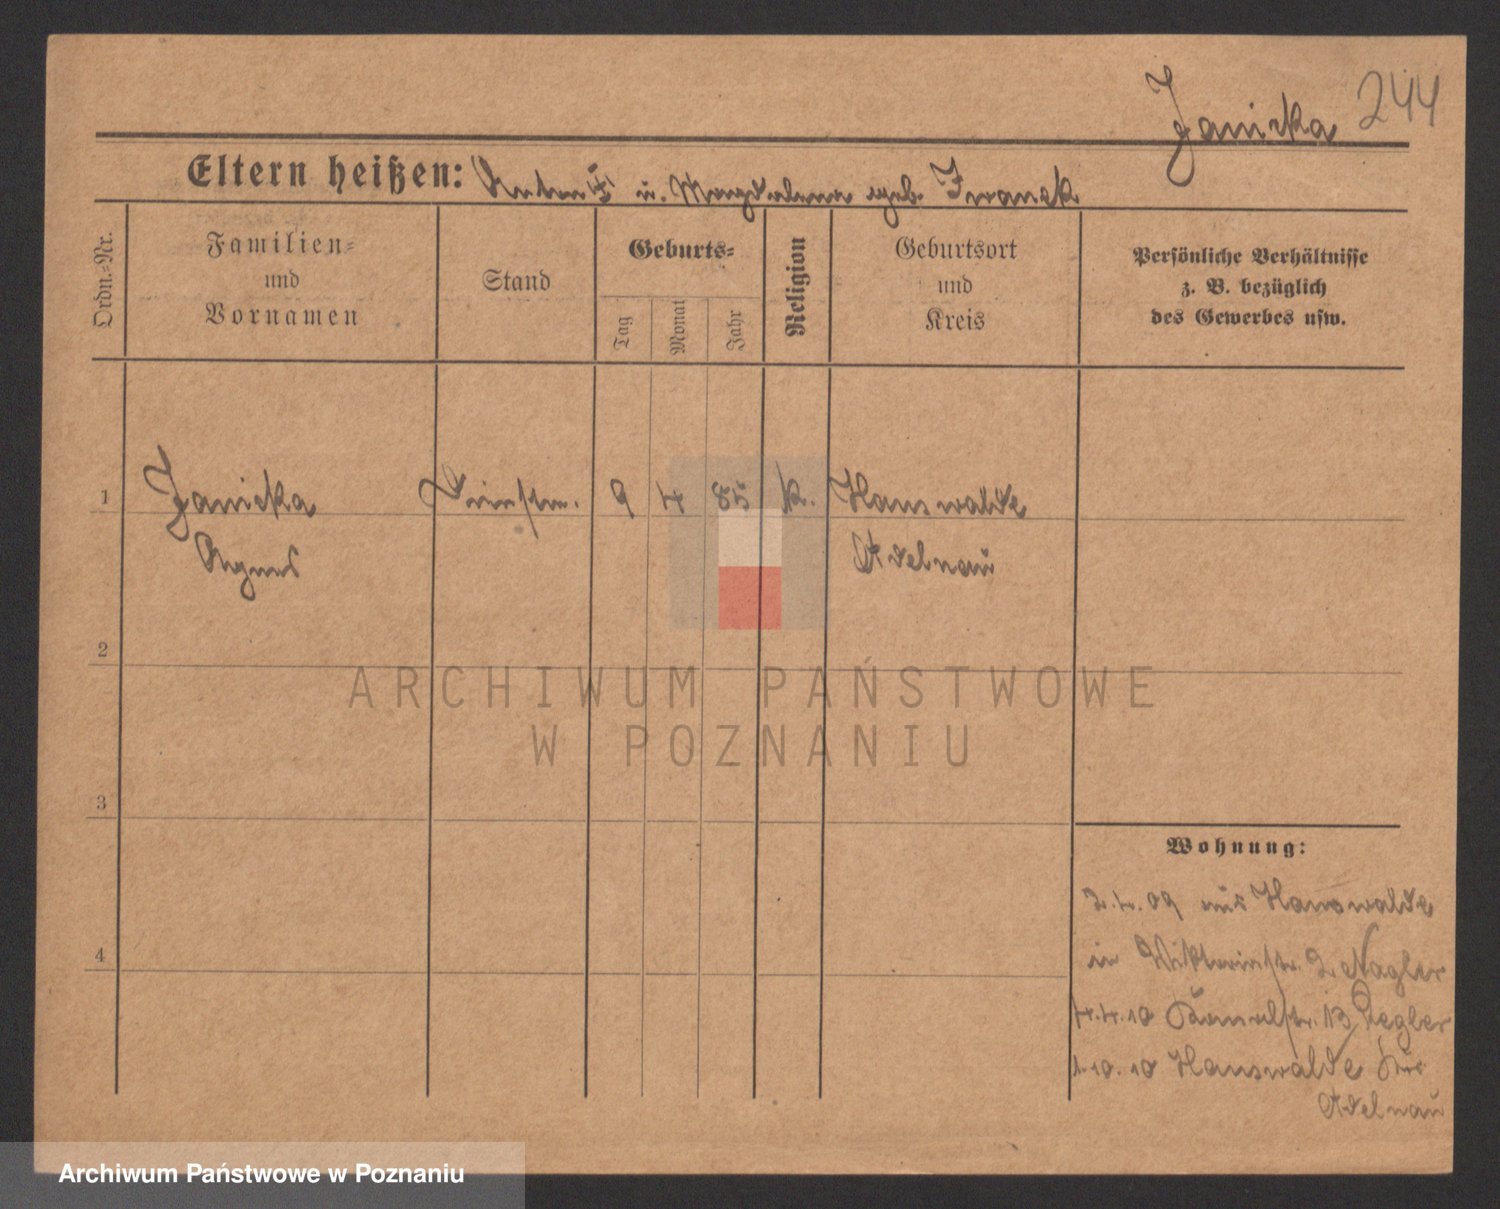 Janicka 244
Eltern heißen: Anton † u. Magdalena geb. Franek
Ordn.=Nr.
Familien=
und
Vornamen
Stand
Geburts=
Tag
Monat
Jahr
Religion
Geburtsort
und
Kreis
Persönliche Verhältnisse
z. B. bezüglich
des Gewerbes usw.
1 Janicka Dienstm. 9 4 85 k. Hanswalde
Agnes Adelnau
2
ARCHIWUM PAŃSTWOWE
W POZNANIU
3
Wohnung:
2.4.09 aus Hanswalde
4
in Viktoriastr. 2 Nagler
4.4.10 13
1.10.10 Hanswalde Krs
Adelnau
Archiwum Państwowe w Poznaniu